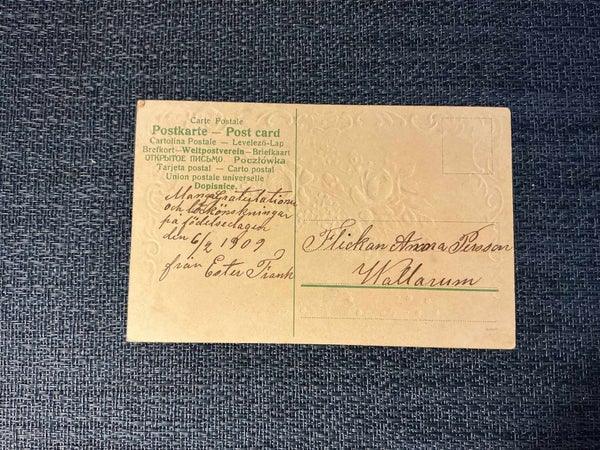 Carte Postale
Postkarte — Post card
Cartolina Postale — Levelező-Lap
Brefkort—Weltpostverein—Briefkaart
ОТКРЫТОЕ ПИСЬМО. Pocztówka
Tarjeta postal — Carto postal
Union postale universelle
Dopisnice.
Manga Gratulationer
och lyckönskningar
på födelsedagen
den 6/2 1909
från Ester Frank
Flickan Anna Persson
Wallarum